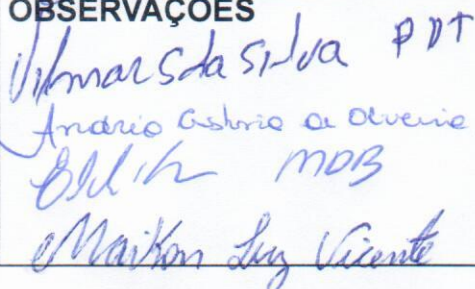 OBSERVAÇÕES
Vilmar S da Silva PDT
de Oliveira
MDB
Maikon Luz Vicente